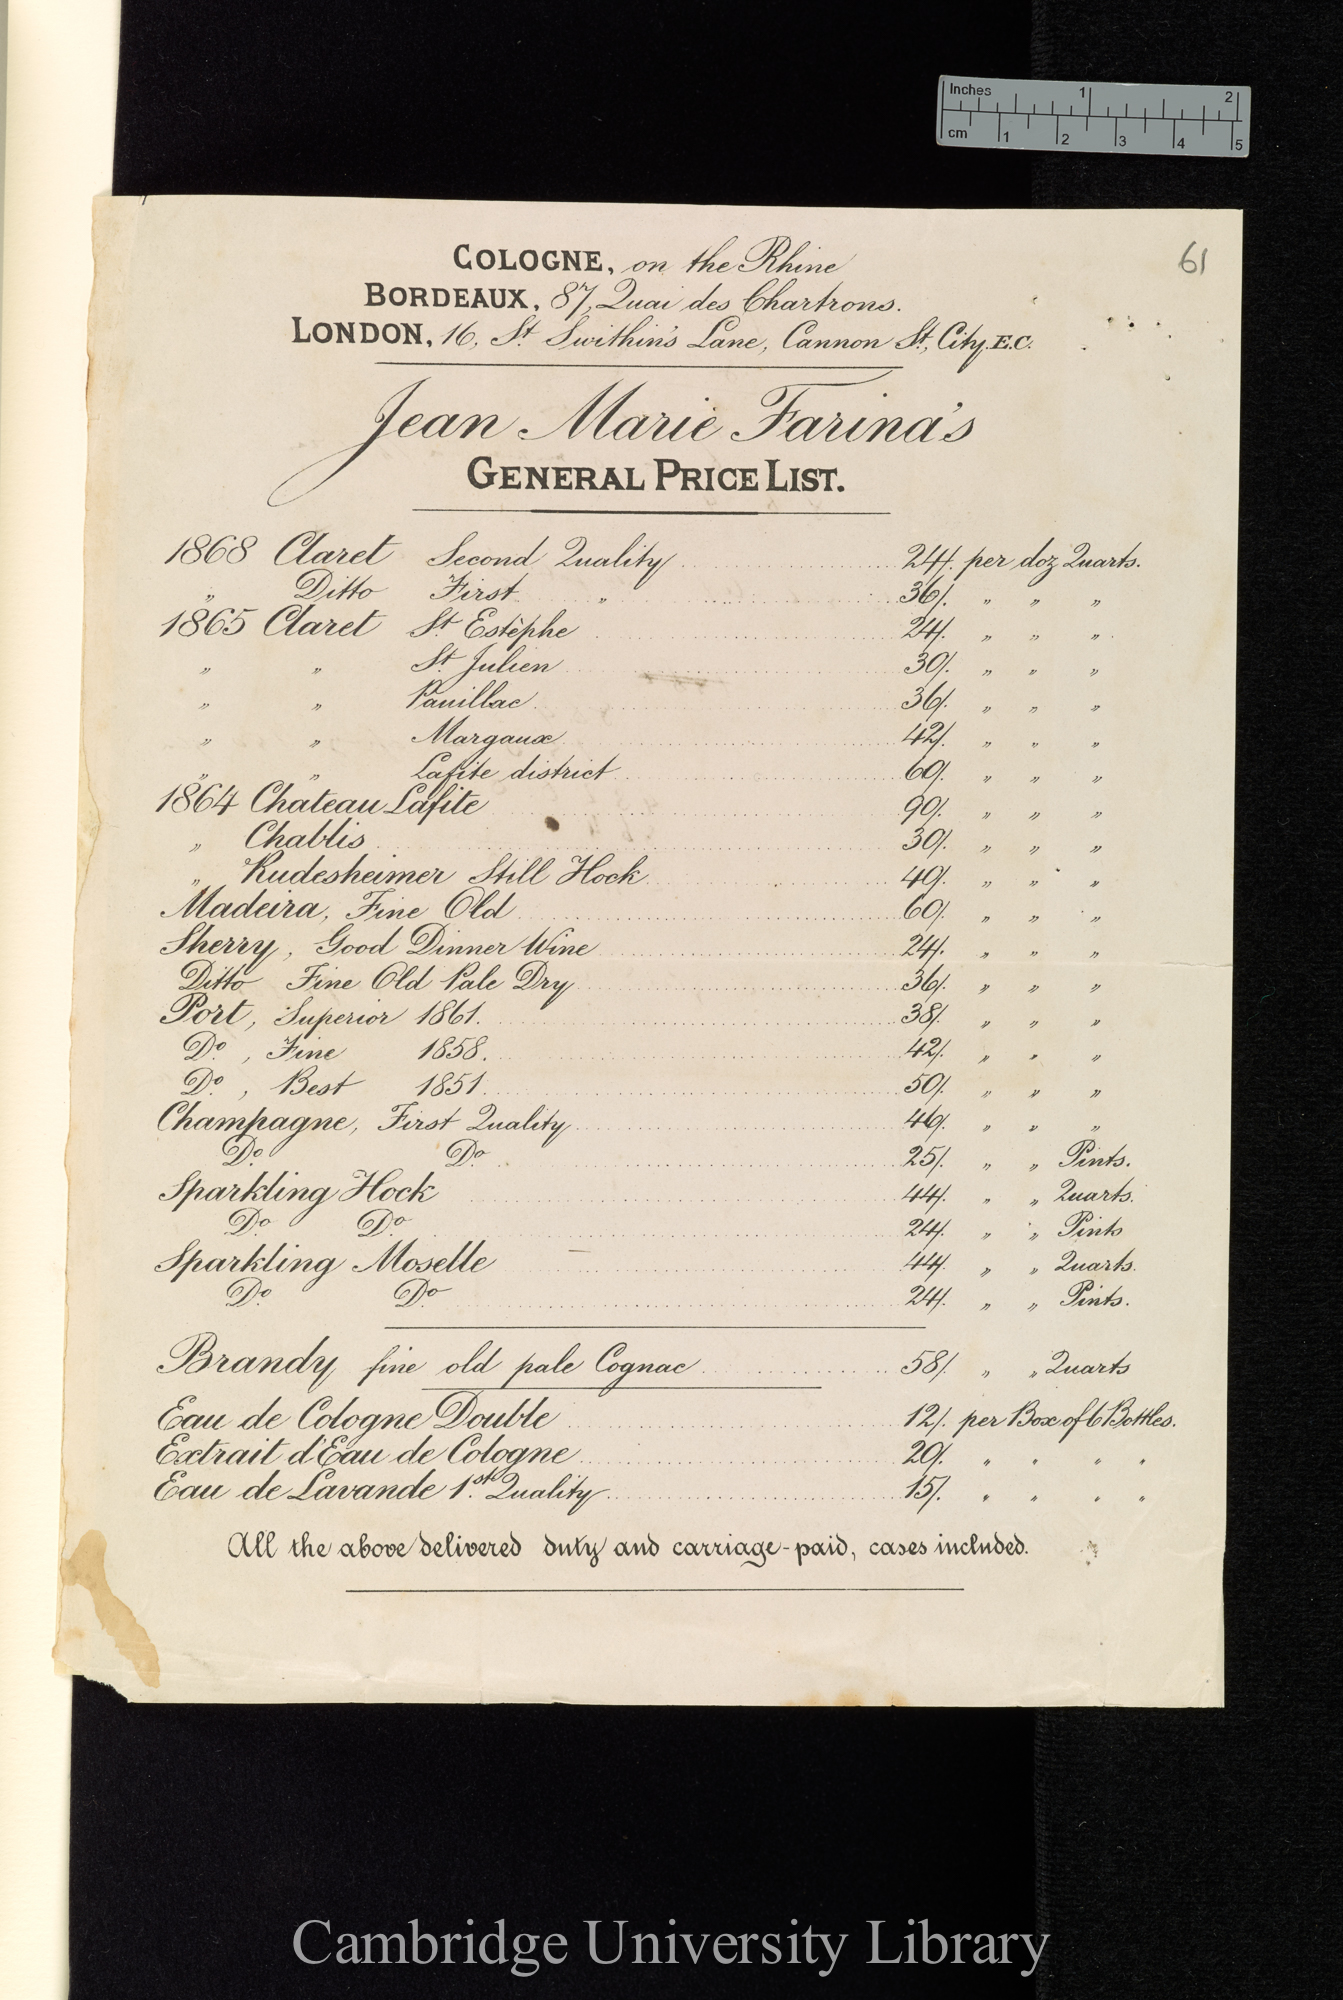 Inches 1 2
cm 1 2 3 4 5
61
COLOGNE, on the Rhine
BORDEAUX, 87, Quai des Chartrons.
LONDON, 16, St. Swithin's Lane, Cannon St., City. E.C.
Jean Marie Farina's
GENERAL PRICE LIST.
1868 Claret Second Quality 24/. per doz Quarts.
" Ditto First " 36/. " " "
1865 Claret St. Estèphe 24/. " " "
" " St. Julien 30/. " " "
" " Pauillac 36/. " " "
" " Margaux 42/. " " "
" " Lafite district 60/. " " "
1864 Chateau Lafite 90/. " " "
" Chablis 30/. " " "
" Rudesheimer Still Hock 40/. " " "
Madeira, Fine Old 60/. " " "
Sherry, Good Dinner Wine 24/. " " "
Ditto Fine Old Pale Dry 36/. " " "
Port, Superior 1861. 38/. " " "
Do., Fine 1858. 42/. " " "
Do., Best 1851. 50/. " " "
Champagne, First Quality 46/. " " "
Do. Do. 25/. " " Pints.
Sparkling Hock 44/. " " Quarts.
Do. Do. 24/. " " Pints
Sparkling Moselle 44/. " " Quarts.
Do. Do. 24/. " " Pints.
Brandy fine old pale Cognac 58/. " " Quarts
Eau de Cologne Double 12/. per Box of 6 Bottles.
Extrait d'Eau de Cologne 20/. " " " "
Eau de Lavande 1st. Quality 15/. " " " "
All the above delivered duty and carriage-paid, cases included.
Cambridge University Library